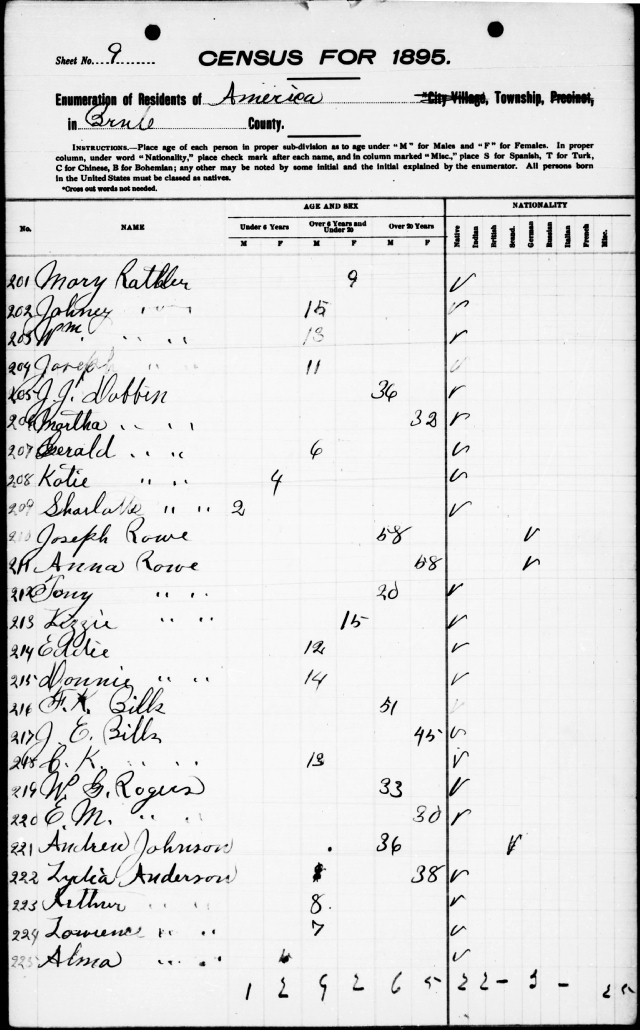 Sheet No. 9
CENSUS FOR 1895.
Enumeration of Residents of America *City Village, Township, Precinct,
in Brule County.
INSTRUCTIONS.—Place age of each person in proper sub-division as to age under "M" for Males and "F" for Females. In proper
column, under word "Nationality," place check mark after each name, and in column marked "Misc.," place S for Spanish, T for Turk,
C for Chinese, B for Bohemian; any other may be noted by some initial and the initial explained by the enumerator. All persons born
in the United States must be classed as natives.
*Cross out words not needed.
AGE AND SEX NATIONALITY
No. NAME Under 6 Years Over 6 Years and Under 20 Over 20 Years Native Indian British Scand. German Russian Italian French Misc.
M F M F M F
201 Mary 9 ✓
202 Johney " " 15 ✓
203 Wm " " 13 ✓
204 Joseph " " 11 ✓
205 J. J. Dobbin 36 ✓
206 Martha " " 32 ✓
207 Gerald " " 6 ✓
208 Katie " " 4 ✓
209 " " 2 ✓
210 Joseph Rowe 58 ✓
211 Anna Rowe 58 ✓
212 Tony " " 20 ✓
213 Lizzie " " 15 ✓
214 Eddie 12 ✓
215 Donnie " " 14 ✓
216 F. K. Bills 51 ✓
217 J. E. Bills 45 ✓
218 C. K. " " 13 ✓
219 W. G. Rogers 33 ✓
220 E. M. " " 30 ✓
221 Andrew Johnson 36 ✓
222 Lydia Anderson 38 ✓
223 Arthur " " 8 ✓
224 Lawrence " " 7 ✓
225 Alma " " ✓
1 2 9 2 6 5 22 - -